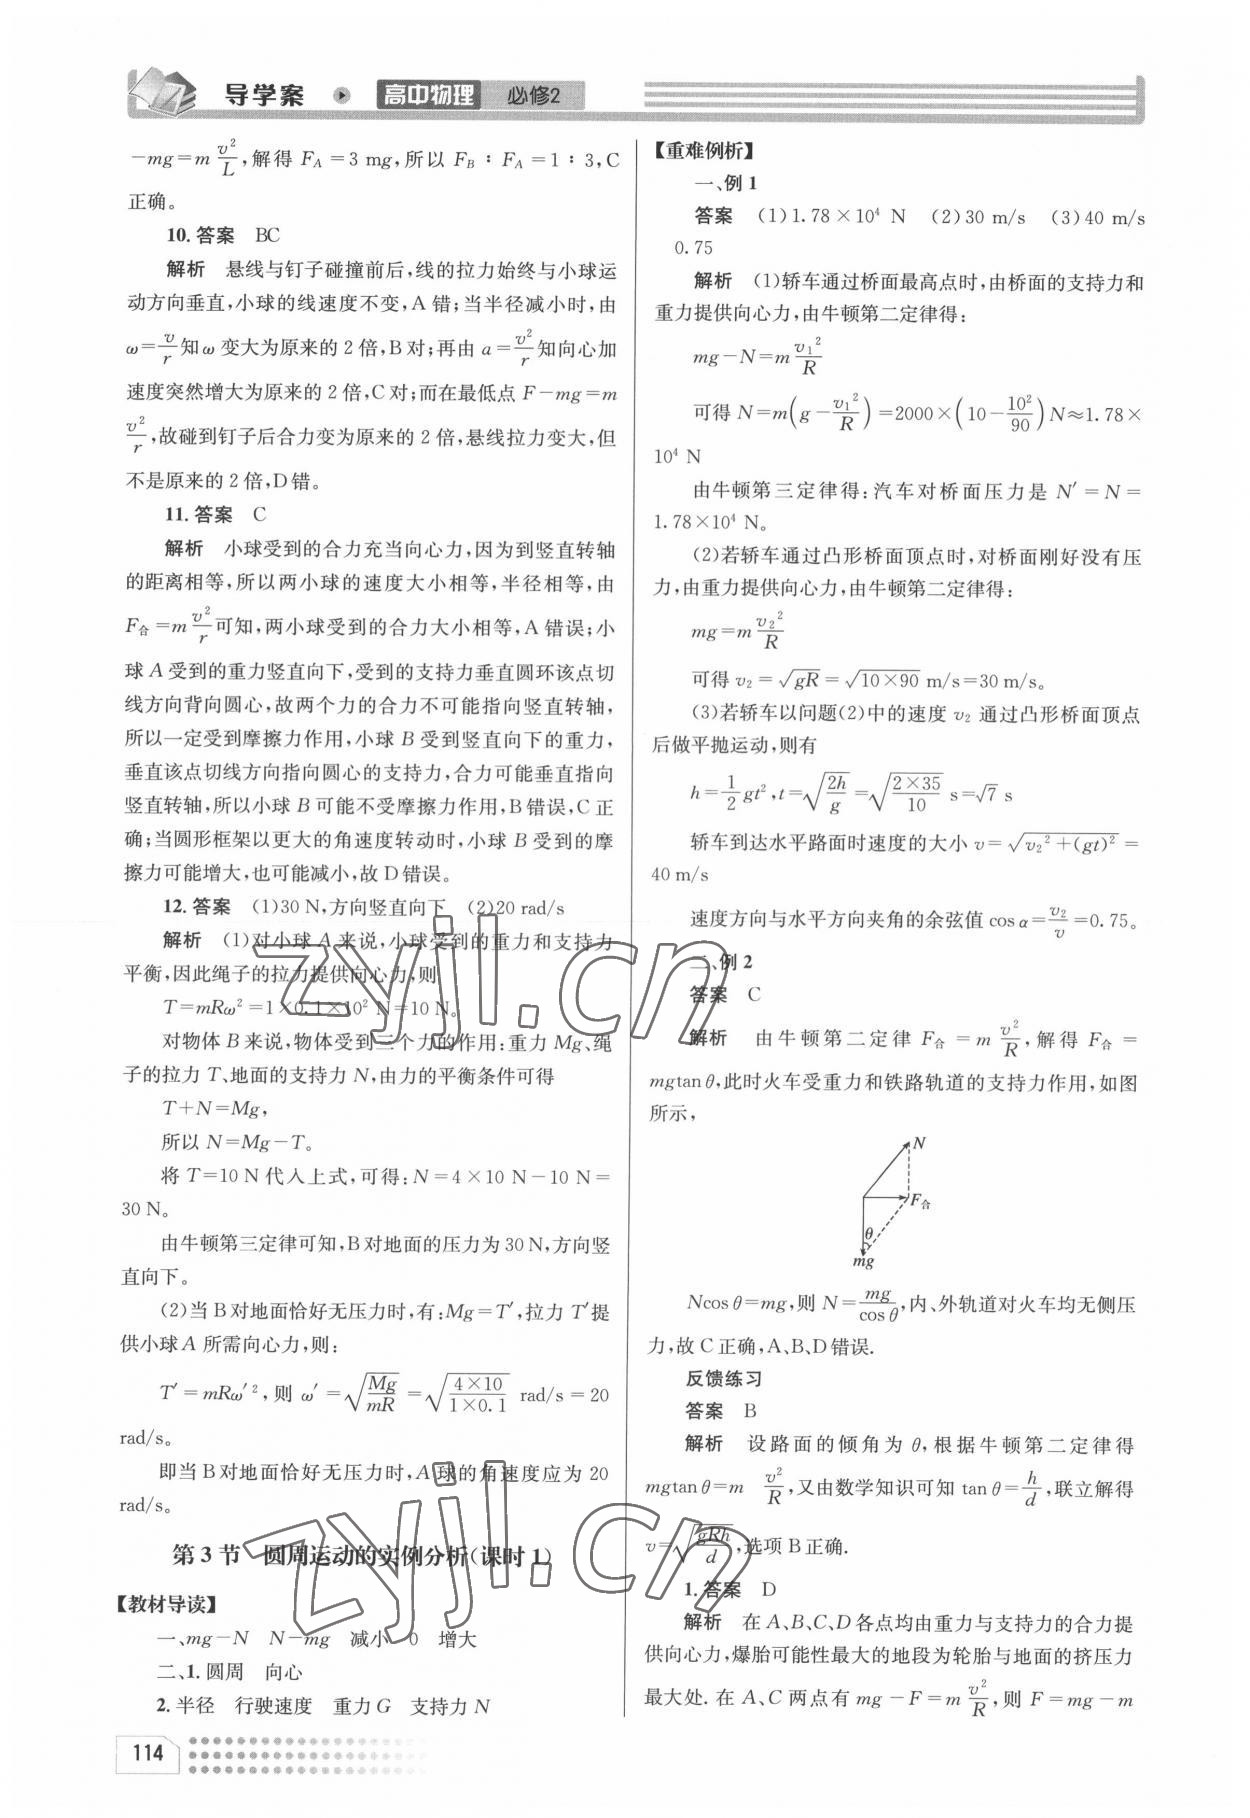 导学案 高中物理 必修2
－mg＝m v²/L，解得 F_A＝3 mg，所以 F_B∶F_A＝1∶3，C
正确。
10. 答案 BC
解析 悬线与钉子碰撞前后，线的拉力始终与小球运
动方向垂直，小球的线速度不变，A 错；当半径减小时，由
ω＝v/r 知 ω 变大为原来的 2 倍，B 对；再由 a＝v²/r 知向心加
速度突然增大为原来的 2 倍，C 对；而在最低点 F－mg＝m
v²/r，故碰到钉子后合力变为原来的 2 倍，悬线拉力变大，但
不是原来的 2 倍，D 错。
11. 答案 C
解析 小球受到的合力充当向心力，因为到竖直转轴
的距离相等，所以两小球的速度大小相等，半径相等，由
F合＝m v²/r 可知，两小球受到的合力大小相等，A 错误；小
球 A 受到的重力竖直向下，受到的支持力垂直圆环该点切
线方向背向圆心，故两个力的合力不可能指向竖直转轴，
所以一定受到摩擦力作用，小球 B 受到竖直向下的重力，
垂直该点切线方向指向圆心的支持力，合力可能垂直指向
竖直转轴，所以小球 B 可能不受摩擦力作用，B 错误，C 正
确；当圆形框架以更大的角速度转动时，小球 B 受到的摩
擦力可能增大，也可能减小，故 D 错误。
12. 答案 (1)30 N，方向竖直向下 (2)20 rad/s
解析 (1)对小球 A 来说，小球受到的重力和支持力
平衡，因此绳子的拉力提供向心力，则
T＝mRω²＝1×0.1×10² N＝10 N。
对物体 B 来说，物体受到三个力的作用：重力 Mg、绳
子的拉力 T、地面的支持力 N，由力的平衡条件可得
T＋N＝Mg，
所以 N＝Mg－T。
将 T＝10 N 代入上式，可得：N＝4×10 N－10 N＝
30 N。
由牛顿第三定律可知，B 对地面的压力为 30 N，方向竖
直向下。
(2)当 B 对地面恰好无压力时，有：Mg＝T′，拉力 T′提
供小球 A 所需向心力，则：
T′＝mRω′²，则 ω′＝√(Mg/mR)＝√(4×10/1×0.1) rad/s＝20
rad/s。
即当 B 对地面恰好无压力时，A 球的角速度应为 20
rad/s。
第 3 节 圆周运动的实例分析(课时 1)
【教材导读】
一、mg－N N－mg 减小 0 增大
二、1. 圆周 向心
2. 半径 行驶速度 重力 G 支持力 N
【重难例析】
一、例 1
答案 (1)1.78×10⁴ N (2)30 m/s (3)40 m/s
0.75
解析 (1)轿车通过桥面最高点时，由桥面的支持力和
重力提供向心力，由牛顿第二定律得：
mg－N＝m v₁²/R
可得 N＝m(g－v₁²/R)＝2000×(10－10²/90)N≈1.78×
10⁴ N
由牛顿第三定律得：汽车对桥面压力是 N′＝N＝
1.78×10⁴ N。
(2)若轿车通过凸形桥面顶点时，对桥面刚好没有压
力，由重力提供向心力，由牛顿第二定律得：
mg＝m v₂²/R
可得 v₂＝√gR＝√(10×90) m/s＝30 m/s。
(3)若轿车以问题(2)中的速度 v₂ 通过凸形桥面顶点
后做平抛运动，则有
h＝1/2 gt²，t＝√(2h/g)＝√(2×35/10) s＝√7 s
轿车到达水平路面时速度的大小 v＝√(v₂²＋(gt)²)＝
40 m/s
速度方向与水平方向夹角的余弦值 cos α＝v₂/v＝0.75。
二、例 2
答案 C
解析 由牛顿第二定律 F合＝m v²/R，解得 F合＝
mgtan θ，此时火车受重力和铁路轨道的支持力作用，如图
所示，
N
F合
θ
mg
Ncos θ＝mg，则 N＝mg/cos θ，内、外轨道对火车均无侧压
力，故 C 正确，A、B、D 错误.
反馈练习
答案 B
解析 设路面的倾角为 θ，根据牛顿第二定律得
mgtan θ＝m v²/R，又由数学知识可知 tan θ＝h/d，联立解得
v＝√(gRh/d)，选项 B 正确.
1. 答案 D
解析 在 A、B、C、D 各点均由重力与支持力的合力提
供向心力，爆胎可能性最大的地段为轮胎与地面的挤压力
最大处. 在 A、C 两点有 mg－F＝m v²/R，则 F＝mg－m
114
zyjl.cn
zyjl.cn